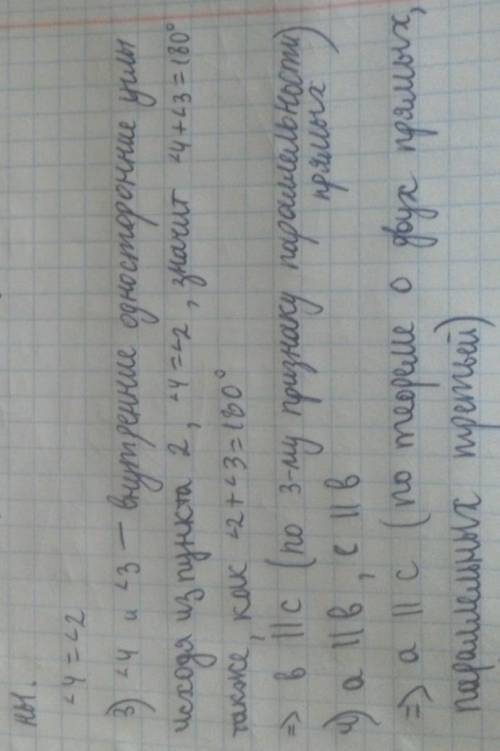 ∠4 = ∠2
3) ∠4 и ∠3 – внутренние односторонние углы
исходя из пункта 2, ∠4 = ∠2, значит ∠4 + ∠3 = 180°
также, как ∠2 + ∠3 = 180°
=> в || с (по 3-му признаку параллельности
прямых)
4) а || в, с || в
=> а || с (по теореме о двух прямых,
параллельных третьей)